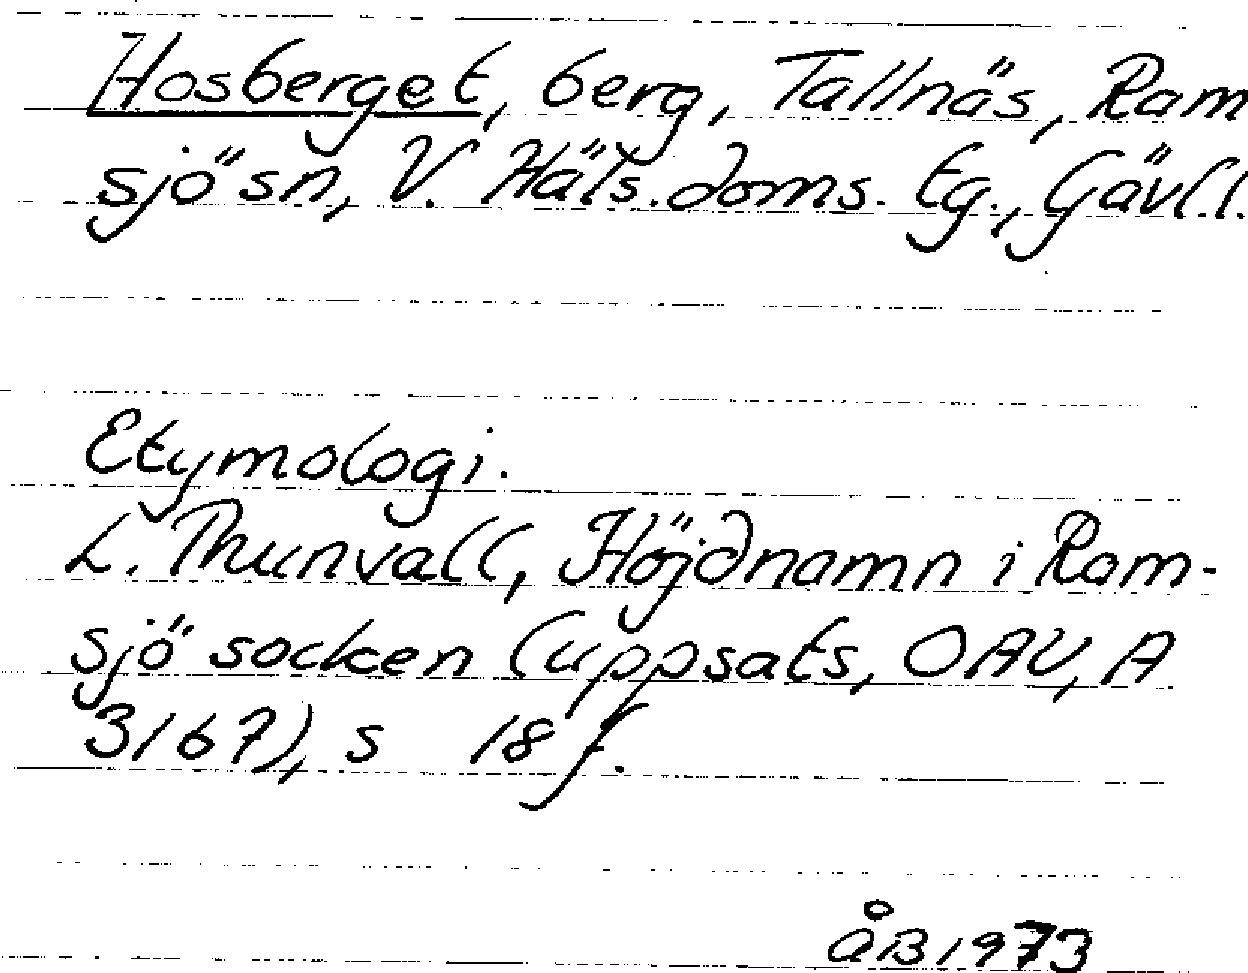 Hosberget, berg, Tallnäs, Ram
sjö sn, V. Häls. doms. tg., Gävl.l.
Etymologi.
L. Thunvall, Höjdnamn i Ram-
sjö socken (uppsats, OAU, A
3167), s 18 f.
ÅB 1973